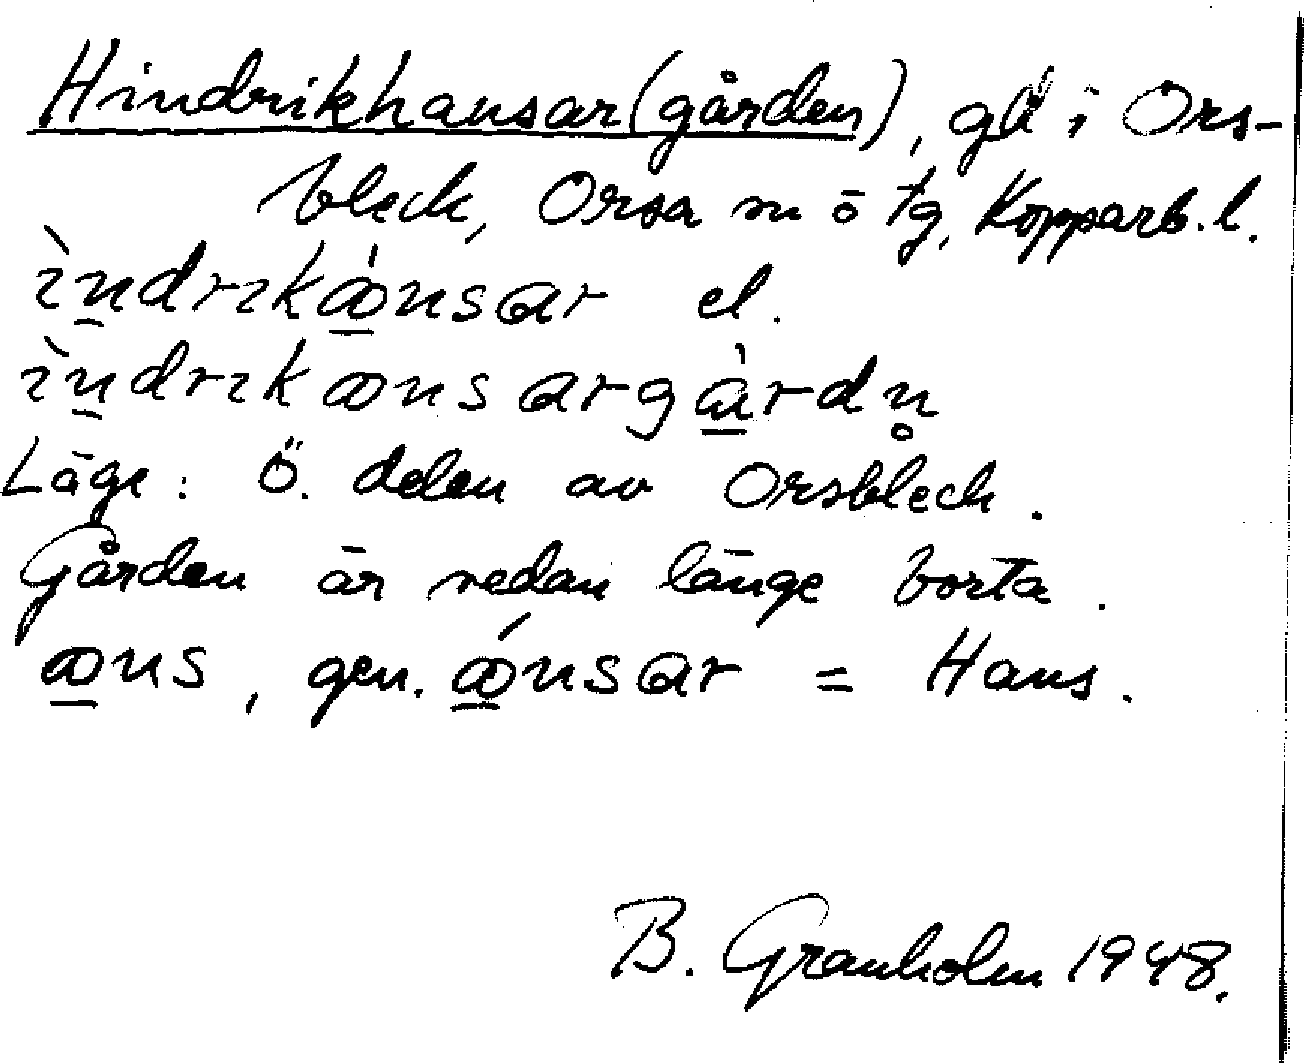 Hindrikhansar(gården), gd i Ors-
bleck, Orsa sn o tg, Kopparb. l.
ìn̲drɪkά̲nsar el.
ìn̲drɪkαnsargὰ̲rdn̥
Läge: Ö. delen av Orsbleck.
Gården är sedan länge borta.
α̲ns, gen. ά̲nsar = Hans.
B. Granholm 1948.